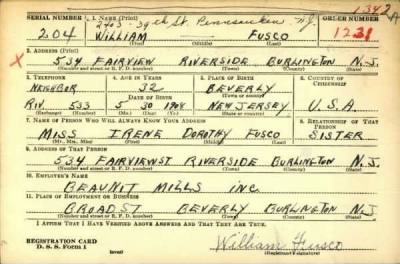 1342 A
SERIAL NUMBER 1. NAME (Print) ORDER NUMBER
2403-39th St. Pennsauken N.J.
204 WILLIAM FUSCO 1231
(First) (Middle) (Last)
2. ADDRESS (Print)
X 534 FAIRVIEW RIVERSIDE BURLINGTON N.J.
(Number and street or R. F. D. number) (Town) (County) (State)
3. TELEPHONE 4. AGE IN YEARS 5. PLACE OF BIRTH 6. COUNTRY OF CITIZENSHIP
NEIGHBOR 32 BEVERLY
DATE OF BIRTH (Town or county)
RIV. 533 5 30 1908 NEW JERSEY U.S.A
(Exchange) (Number) (Mo.) (Day) (Yr.) (State or country)
7. NAME OF PERSON WHO WILL ALWAYS KNOW YOUR ADDRESS 8. RELATIONSHIP OF THAT PERSON
MISS IRENE DOROTHY FUSCO SISTER
(Mr., Mrs., Miss) (First) (Middle) (Last)
9. ADDRESS OF THAT PERSON
534 FAIRVIEW ST RIVERSIDE BURLINGTON N.J.
(Number and street or R. F. D. number) (Town) (County) (State)
10. EMPLOYER'S NAME
BEAUNIT MILLS INC.
11. PLACE OF EMPLOYMENT OR BUSINESS
BROAD ST BEVERLY BURLINGTON N.J.
(Number and street or R. F. D. number) (Town) (County) (State)
I AFFIRM THAT I HAVE VERIFIED ABOVE ANSWERS AND THAT THEY ARE TRUE.
REGISTRATION CARD William Fusco
D. S. S. Form 1 (over) (Registrant's signature)